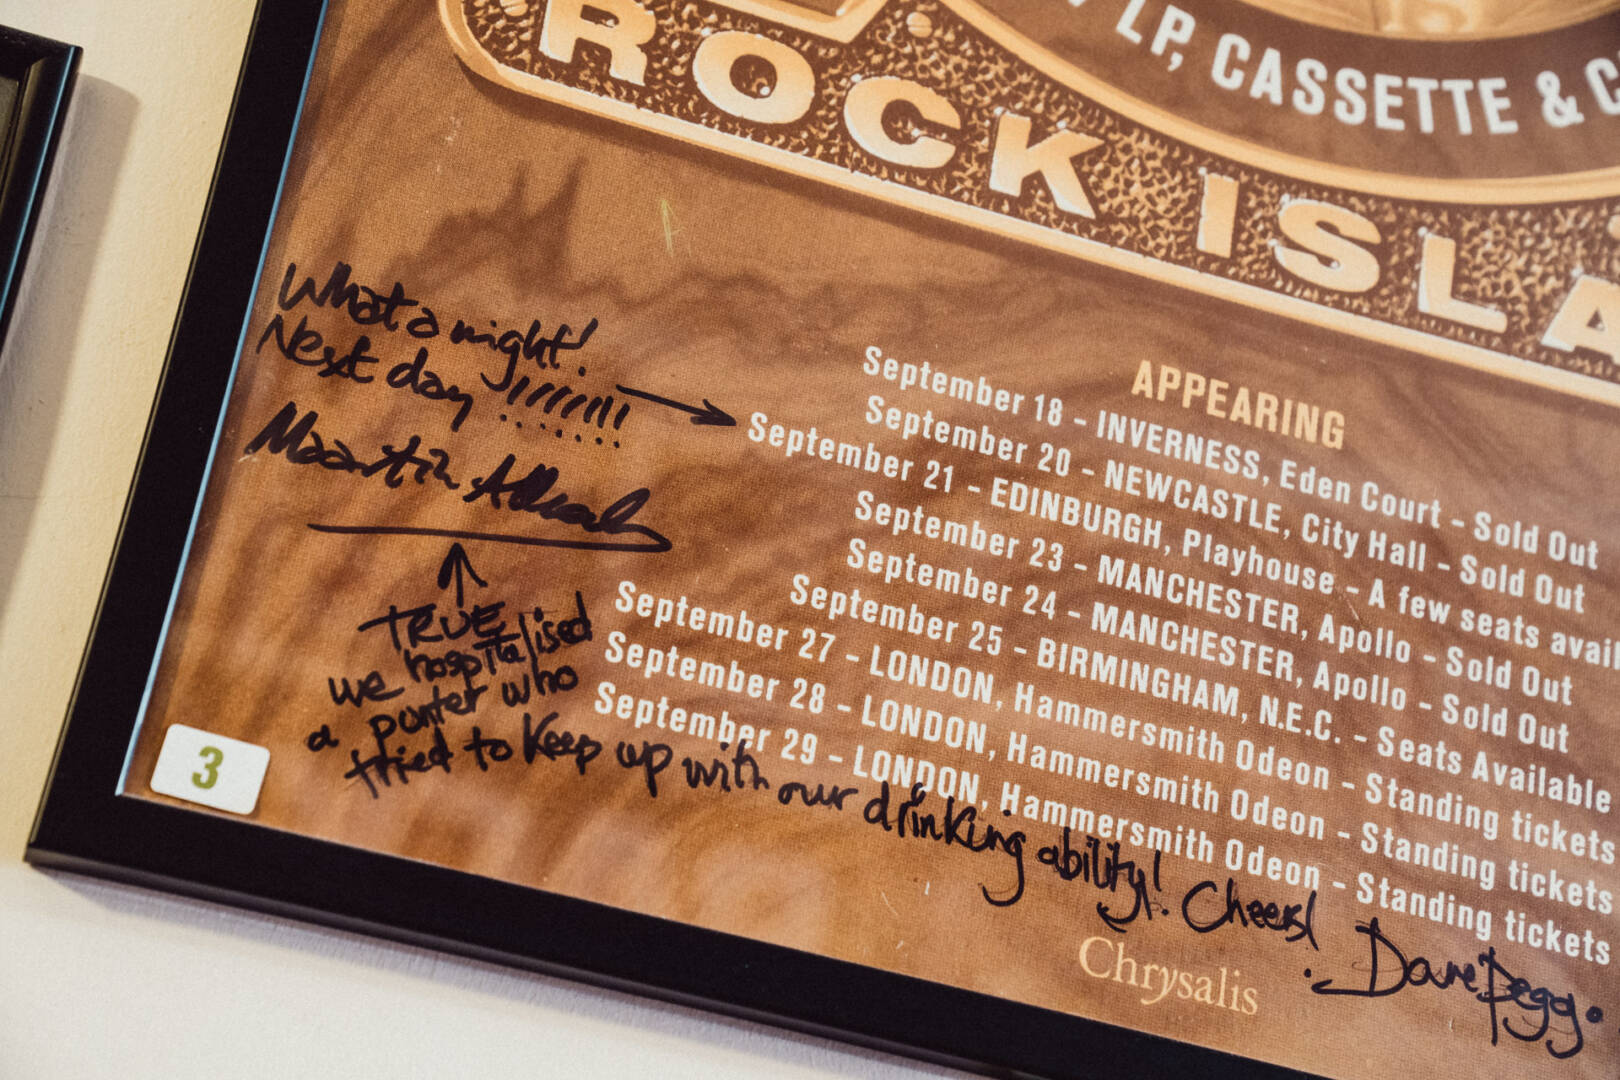 LP, CASSETTE & C
ROCK ISLA
APPEARING
September 18 - INVERNESS, Eden Court - Sold Out
September 20 - NEWCASTLE, City Hall - Sold Out
September 21 - EDINBURGH, Playhouse - A few seats avail
September 23 - MANCHESTER, Apollo - Sold Out
September 24 - MANCHESTER, Apollo - Sold Out
September 25 - BIRMINGHAM, N.E.C. - Seats Available
September 27 - LONDON, Hammersmith Odeon - Standing tickets
September 28 - LONDON, Hammersmith Odeon - Standing tickets
September 29 - LONDON, Hammersmith Odeon - Standing tickets
What a night!
Next day !!!!!!!!
Maartin Allcock
TRUE
we hospitalised
a punter who
tried to keep up with our drinking ability! Cheers! Dave Pegg.
3
Chrysalis